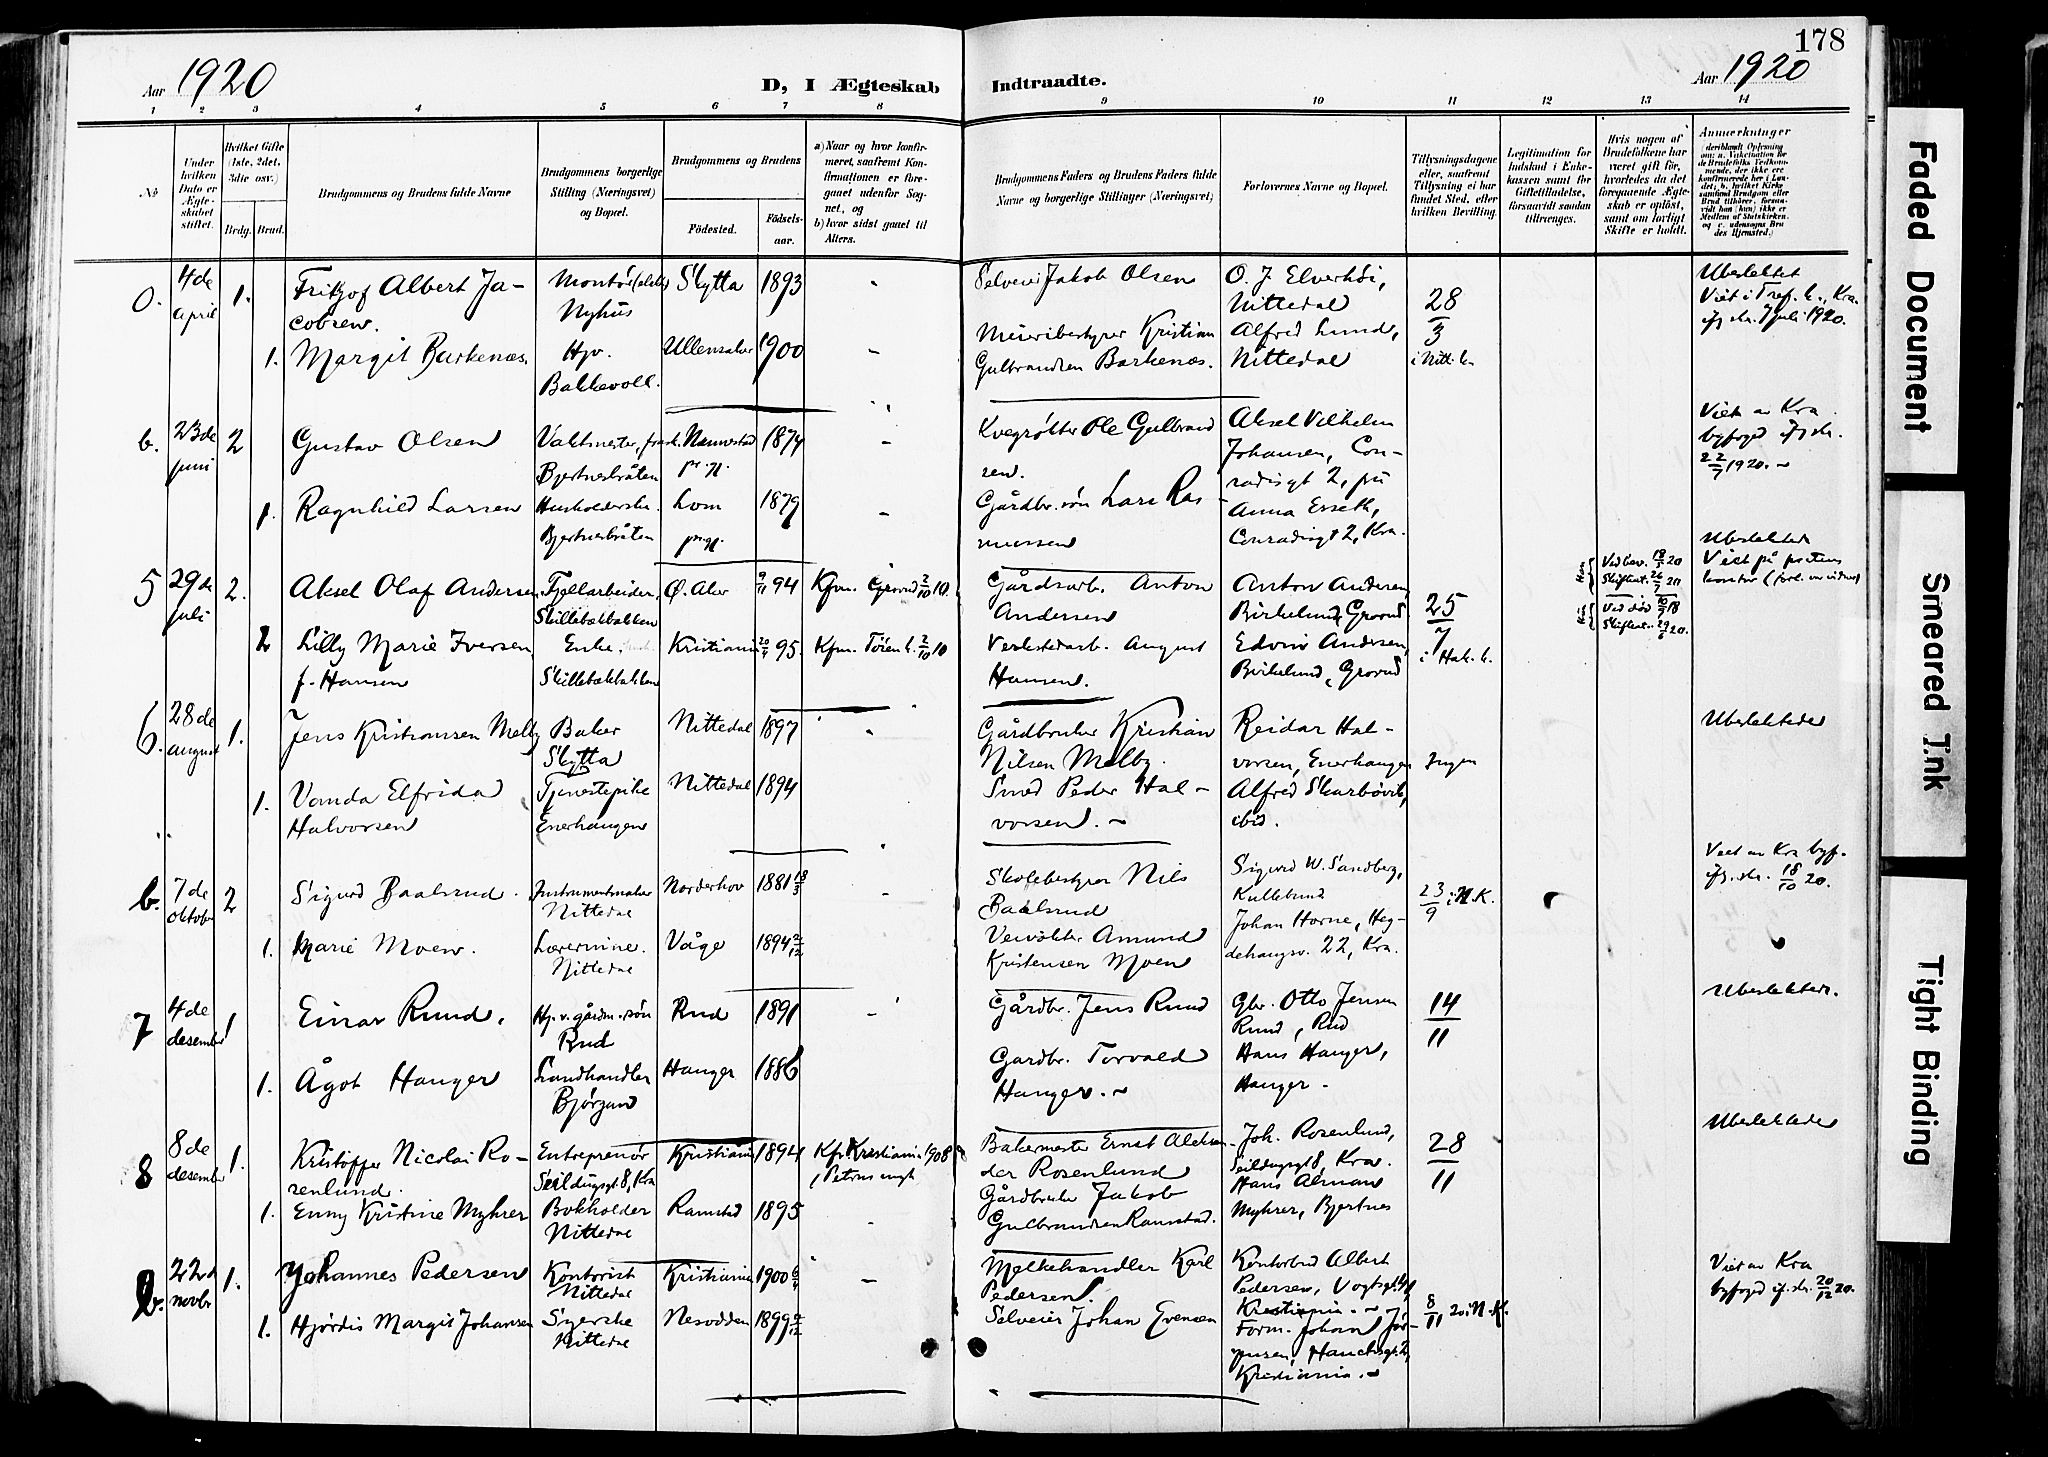 178
Aar 1920
D, I Ægteskab Indtraadte.
Aar 1920
1 2 3 4 5 6 7 8 9 10 11 12 13 14
No
Under hvilken Dato er Ægteskabet stiftet.
Hvilket Gifte (1ste, 2det, 3die osv.)
Brdg. Brud.
Brudgommens og Brudens fulde Navne
Brudgommens borgerlige Stilling (Næringsvei) og Bopæl.
Brudgommens og Brudens
Födested.
Födselsaar.
a) Naar og hvor konfirmeret, saafremt Konfirmationen er foregaaet udenfor Sognet, og
b) hvor sidst gaaet til Alters.
Brudgommens Faders og Brudens Faders fulde Navne og borgerlige Stillinger (Næringsvei)
Forlovernes Navne og Bopæl.
Tillysningsdagene eller, saafremt Tillysning ei har fundet Sted, efter hvilken Bevilling.
Legitimation for Indskud i Enkekassen samt for Giftetilladelse, forsaavidt saadan tiltrænges.
Hvis nogen af Brudefolkene har været gift för, hvorledes da det foregaaende Ægteskab er oplöst, samt om lovligt Skifte er holdt.
Anmerkninger
(deriblandt Oplysning om: a. Vakcination for de Brudefolks Vedkommende, der ikke ere konfirmerede her i Landet; b. hvilket Kirkesamfund Brudgom eller Brud tilhörer, forsaavidt han (hun) ikke er Medlem af Statskirken, og c. udensogns Brudes Hjemsted.)
0. 4de april 1. Fritzof Albert Jacobsen. Montör Nyhus Skytta 1893 -
Selveier Jakob Olsen
O. J. Elverhöi, Nittedal
28/3 i Nitt. k.
Ubeslektet
Viet i Tref. k., Kra. ifg skr. 7 juli 1920.
1. Margit Barkenæs. Hjv. Bakkevoll. Ullensaker 1900 -
Meieribestyrer Kristian Gulbrandsen Barkenæs.
Alfred Lund, Nittedal
b. 23de juni 2 Gustav Olsen Vaktmester, Bjertnesbråten Nannestad pr.gj. 1874 -
Kvegrökter Ole Gulbrandsen.
Aksel Vilhelm Johansen, Conradisgt 2, på
Viet av Kra. byfoged ifg skr. 22/7 1920. -
1. Ragnhild Larsen Husholderske. Bjertnesbråten Lom pr.gj. 1879 -
Gårdbr. sön Lars Rasmussen
Anna Esseth, Conradisgt 2, Kra.
5 29de juli 2. Aksel Olaf Andersen Fjellarbeider, Skillebækbakken Ø. Aker 9/11 94 Kfm. Grorud 2/10 10.
Gårdsarb. Anton Andersen
Anton Andersen, Birkelund, Grorud
25/7 i Hak. k.
Ubeslektede
Viet på
2 Lilly Marie Iversen f. Hansen Enke. Skillebækbakken Kristiania 20/4 95. Kfm. Töien k. 2/10 10
Verkstedarb. August Hansen.
Edvin Andersen, Birkelund, Grorud
6. 28de august 1. Jens Kristiansen Melby Baker Skytta Nittedal 1897 -
Gårdbruker Kristian Nilsen Melby.
Reidar Halvorsen, Enerhaugen
Ingen
Ubeslektede
1. Vanda Elfrida Halvorsen Tjenestepike Enerhaugen Nittedal 1894
Smed Peder Halvorsen. -
Alfred Skarbövik, ibid.
b. 7de oktober 2 Sigurd Baalsrud. Instrumentmaker Nittedal Norderhov 1881 18/3 -
Skolebestyrer Nils Baalsrud
Sigurd W. Sandberg, Kullebund
23/9 i N.K.
Viet av Kra byf. ifg. skr. 18/10 20.
1. Marie Moen. Lærerinne. Nittedal Vågå 1894 2/12
Veivokter Amund Kristensen Moen
Johan Horne, Hegdehaugsv. 22, Kra.
7 4de desember 1 Einar Ruud. Hj. v. gårdm. sön Rud Rud 1891 -
Gårdbr. Jens Ruud
Gbr. Otto Jensen Ruud, Rud
14/11
Ubeslektede.
1. Ågot Hauger Landhandler Hauger 1886
Gardbr. Torvald Hauger. -
Hans Hauger, Hauger -
8 8de desember 1. Kristoffer Nicolai Rosenlund. Entreprenör Seildugsgt. 8, Kra Kristiania 1894 Kfm Kristiania 1908 i Petrus mgh
Bakermester Ernst Aleksander Rosenlund
Joh. Rosenlund, Seildugsgt 8, Kra.
28/11
Ubeslektede
1. Enny Kristine Myhrer Bokholder Nittedal Ramstad 1895 -
Gårdbruker Jakob Gulbrandsen Ramstad.
Hans Alman Myhrer, Bjertnes
b. 22d novbr 1. Johannes Pedersen Kontorist Nittedal Kristiania 1900 6/4 -
Melkehandler Karl Pedersen.
Kontorbud Albert Pedersen, Vogtsgt. Kristiania. -
8/11 20 i N.K.
Viet av Kra byfoged if. skr. 20/12 20.
1. Hjördis Margit Johansen Syerske Nittedal Nesodden 1899
Selveier Johan Evensen
Form. Johan Jörgensen, Kristiania. -
Faded Document
Smeared Ink
Tight Binding